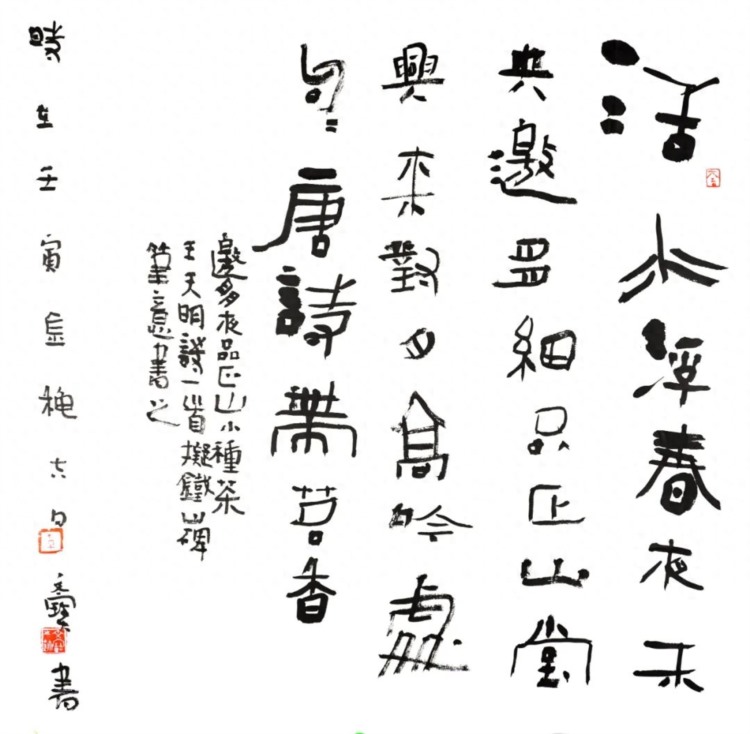 活水浮春夜未
央邀朋細品正山堂
興來對月高吟處
句〻唐詩帶茗香
邀友夜品正山小種茶
王天明詩一首擬鐵山碑
筆意書之
時在壬寅孟秋日書